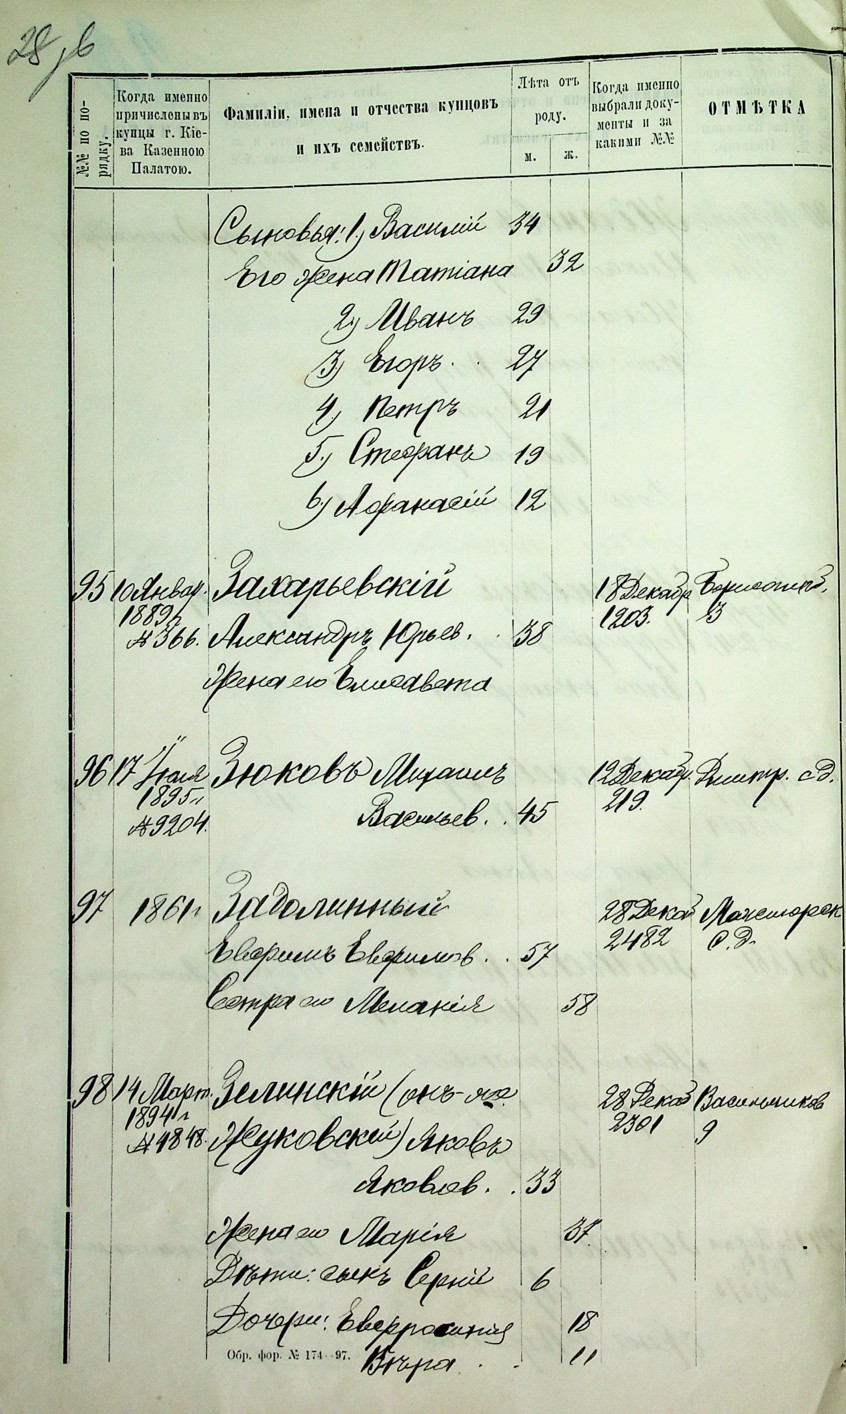 28 об
№№ по по-
рядку.
Когда именно
причислены въ
купцы г. Кіе-
ва Казенною
Палатою.
Фамиліи, имена и отчества купцовъ
и ихъ семействъ.
Лѣта отъ
роду.
м. ж.
Когда именно
выбрали доку-
менты и за
какими №№
ОТМѢТКА
Сыновья: 1) Василій 34
Его жена Татіана 32
2) Иванъ 29
3) Егоръ 27
4) Петръ 21
5) Стефанъ 19
6) Афанасій 12
95 10 Январ. Захарьевскій 18 Декабр
1889 г. 1203. 3
№ 366. Александръ Юрьев. 38
Жена его Елисавета
96 17 Іюля Зюковъ Михаилъ 12 Декабр. Дмитр. с. д.
1895 г. 219.
№ 9204. Васильев. 45
97 1861 г. 28 Декаб
2482 с. д.
Евфимъ Евфимов. 57
Сестра его Меланія 58
98 14 Март. Зелинскій (онъ-же 28 Декаб Васильчиков
1894 г. 2301 9
№ 4848. Жуковскій) Яковъ
Яковлев. 33
Жена его Марія 37
Дѣти: сынъ Сергій 6
Дочери: Евфросинія 18
Вѣра 11
Обр. фор. № 174—97.